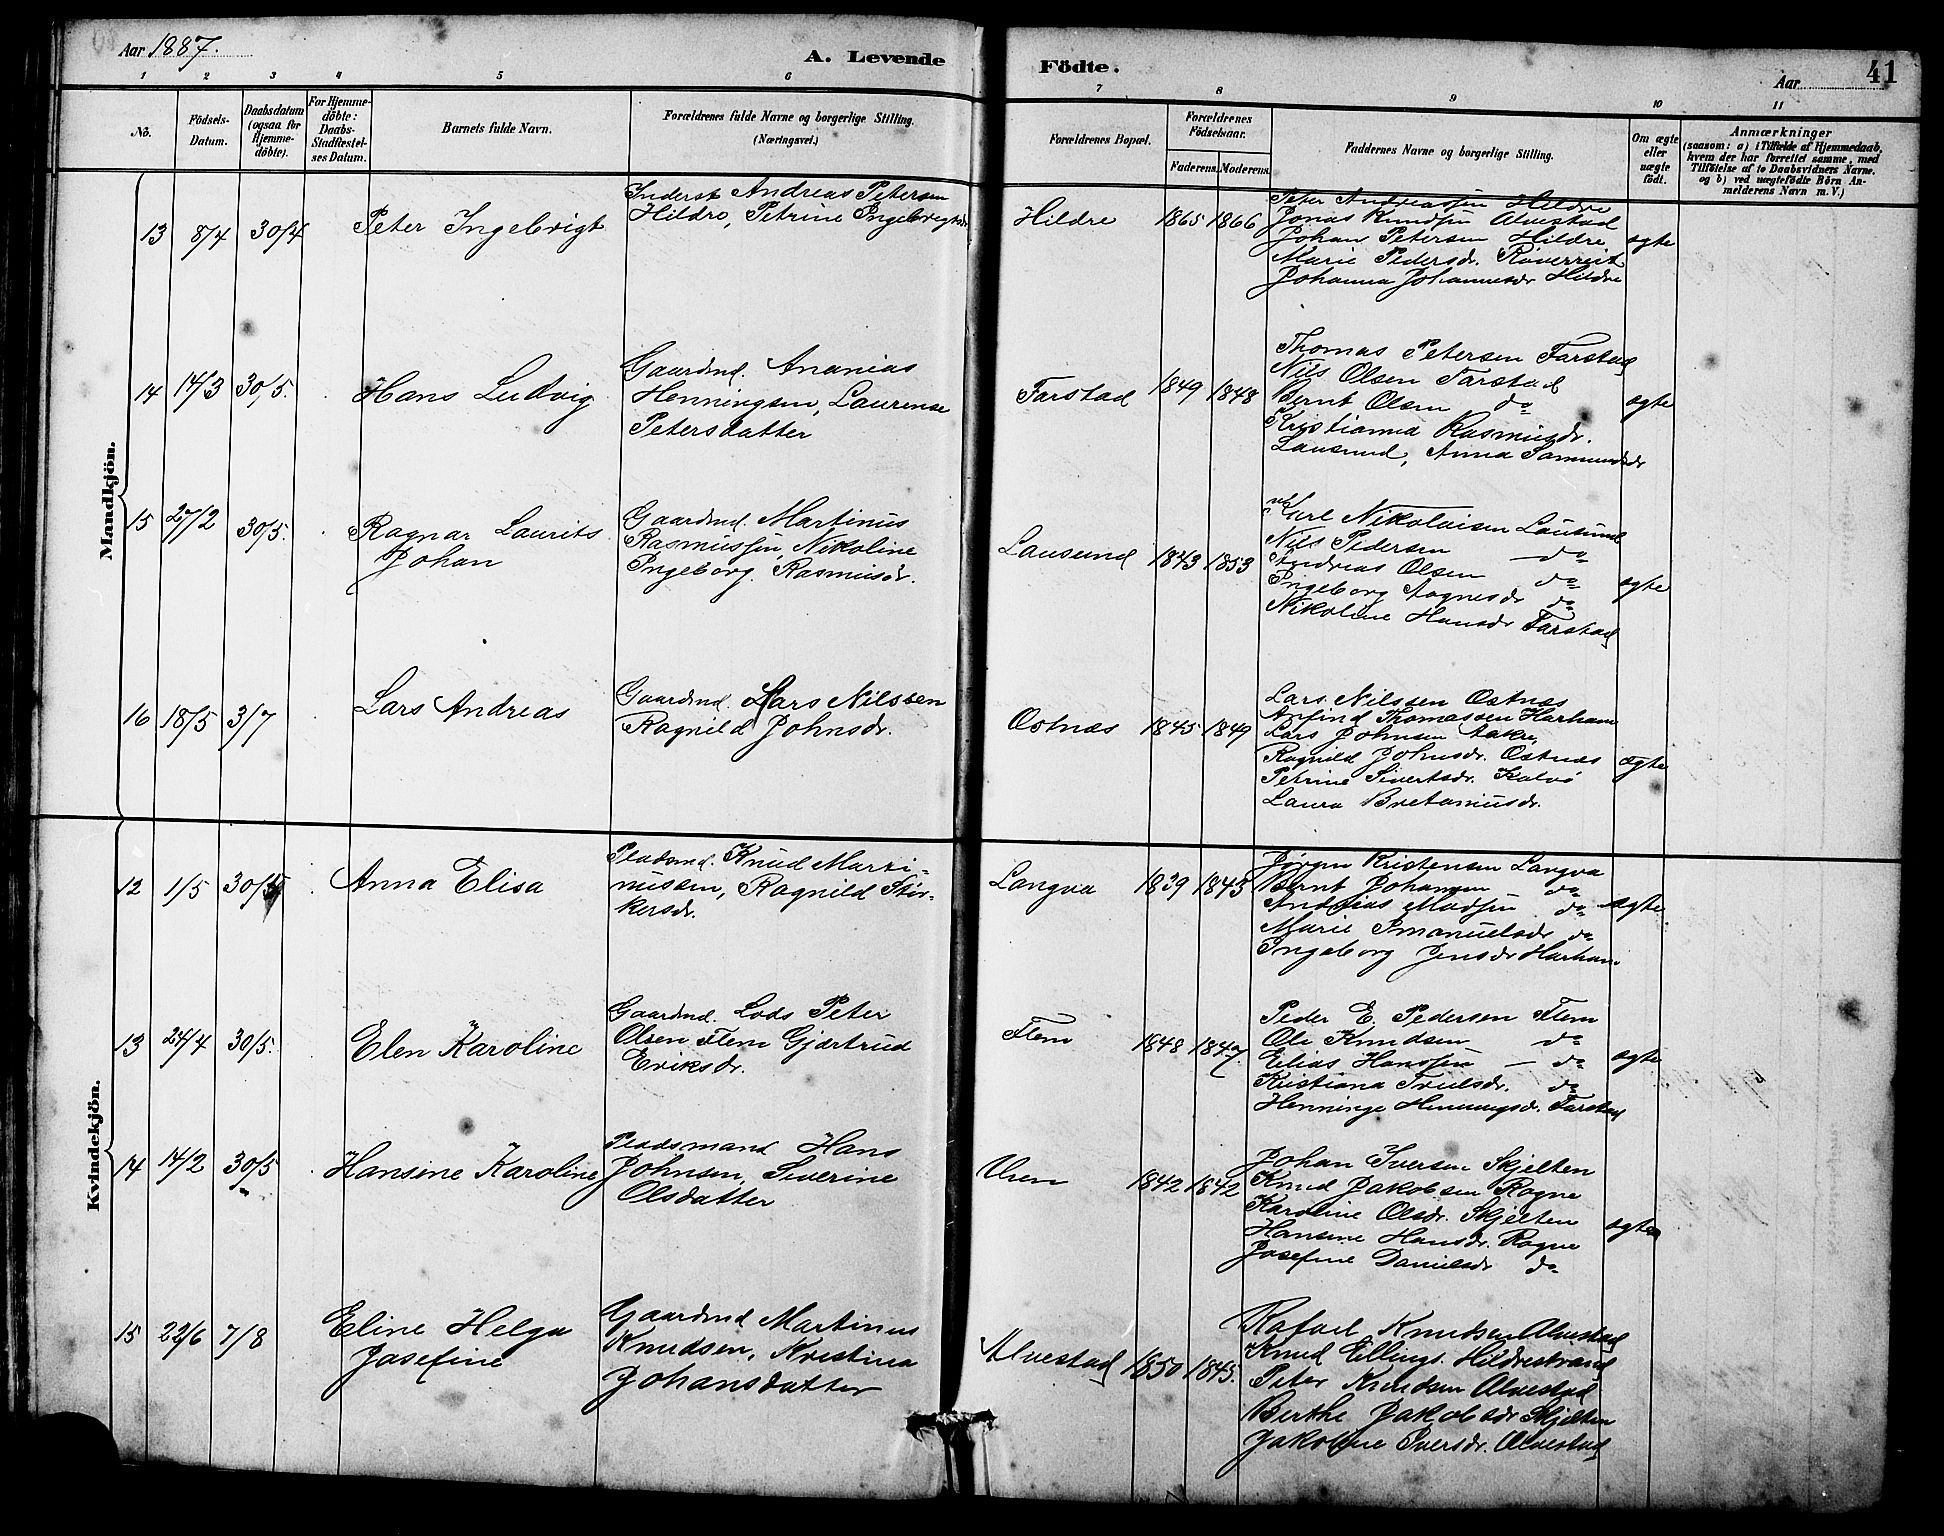 Aar 1887.
A. Levende
Födte.
Aar
41
1 2 3 4 5 6
7 8 9 10 11
No.
Födsels-
Datum.
Daabsdatum
(ogsaa for
Hjemme-
döbte).
For Hjemme-
döbte:
Daabs-
Stadfæstel-
ses Datum.
Barnets fulde Navn.
Forældrenes fulde Navne og borgerlige Stilling.
(Næringsvei.)
Forældrenes Bopæl.
Forældrenes
Födselsaar.
Faderens. Moderens.
Faddernes Navne og borgerlige Stilling.
Om ægte
eller
uægte
födt.
Anmærkninger
(saasom: a) i Tilfælde af Hjemmedaab,
hvem der har forrettet samme, med
Tilföielse af to Daabsvidners Navne.
og b) ved uægtefödte Börn An-
melderens Navn m. V.)
Mandkjön.
13 8/4 30/4 Peter Ingebrigt
Inderst Andreas Petersen
Hildre, Petrine Ingebrigtsdr
Hildre 1865 1866
Peter Andreassen Hildre
Jonas Knudsen Alvestad
Johan Petersen Hildre
Marie Pedersdr. Röverreit
Johanna Johannesdr Hildre
ægte
14 14/3 30/5. Hans Ludvig
Gaardmd. Ananias
Henningsen, Laurense
Petersdatter
Farstad 1849 1848
Thomas Petersen Farstad
Nils Olsen Farstad
Bernt Olsen do
Kristianna Rasmusdr.
Lausund, Anna Samundsdr
ægte
15 27/2 30/5. Ragnar Laurits
Johan
Gaardmd. Martinus
Rasmussen, Nikoline
Ingeborg Rasmusdr.
Lausund 1843 1853
Karl Nikolaisen Lausund
Nils Pedersen do
Andreas Olsen do
Ingeborg Aagnesdr do
Nikoline Hansdr Farstad
ægte
16 18/5 3/7 Lars Andreas
Gaardmd. Lars Nilssen
Ragnild Johnsdr.
Ostnæs 1845 1849
Lars Nilssen Ostnæs
Anfind Thomassen Harham
Lars Johnsen Aakre,
Ragnild Johnsdr. Ostnæs
Petrine Sivertsdr. Kalvö
Laura Bretamusdr.
ægte
Kvindekjön.
12 1/5 30/5 Anna Elisa
Pladsmd. Knud Marti-
nussen, Ragnild Stör-
kersdr.
Langva 1839 1845
Jörgen Kristensen Langva
Bernt Johansen do
Andreas Madsen do
Marie Imanuelsdr do
Ingeborg Jensdr Harham
ægte
13 24/4 30/5. Elen Karoline
Gaardmd. Lods Peter
Olsen Flem Gjertrud
Eriksdr.
Flem 1848 1847.
Peder E. Pedersen Flem
Ole Knudsen do
Elias Hanssen — do
Kristiana Trulsdr. do
Henninge Henningsdr. Farstad
ægte
14 14/2 30/5 Hansine Karoline
Pladsmand Hans
Johnsen, Severine
Olsdatter
Uren 1842 1842
Johan Iversen Skjelten
Knud Jakobsen Rogne
Karoline Olsdr. Skjelten
Hansine Hansdr. Rogne
Josefine Danielsdr do
ægte
15 22/6 7/8 Eline Helga
Josefine
Gaardmd Martinus
Knudsen, Kristina
Johansdatter
Alvestad 1850 1845.
Rafael Knudsen Alvestad
Knud Ellings. Hildrestrand
Peter Knudsen Alvestad
Berthe Jakobsdr Skjelten
Jakobine Iversdr. Alvestad